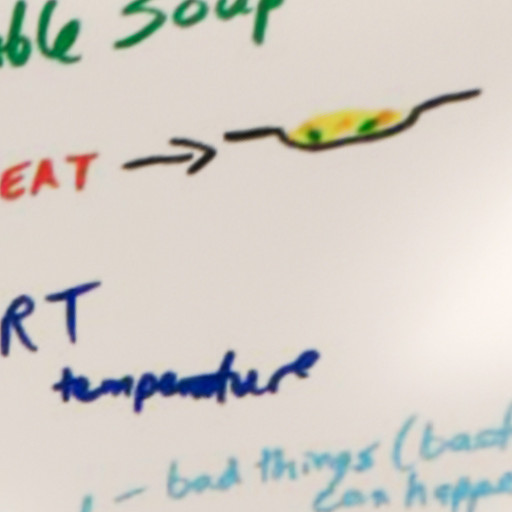 ble Soup
EAT
RT
temperature
- bad things (bad
can happe